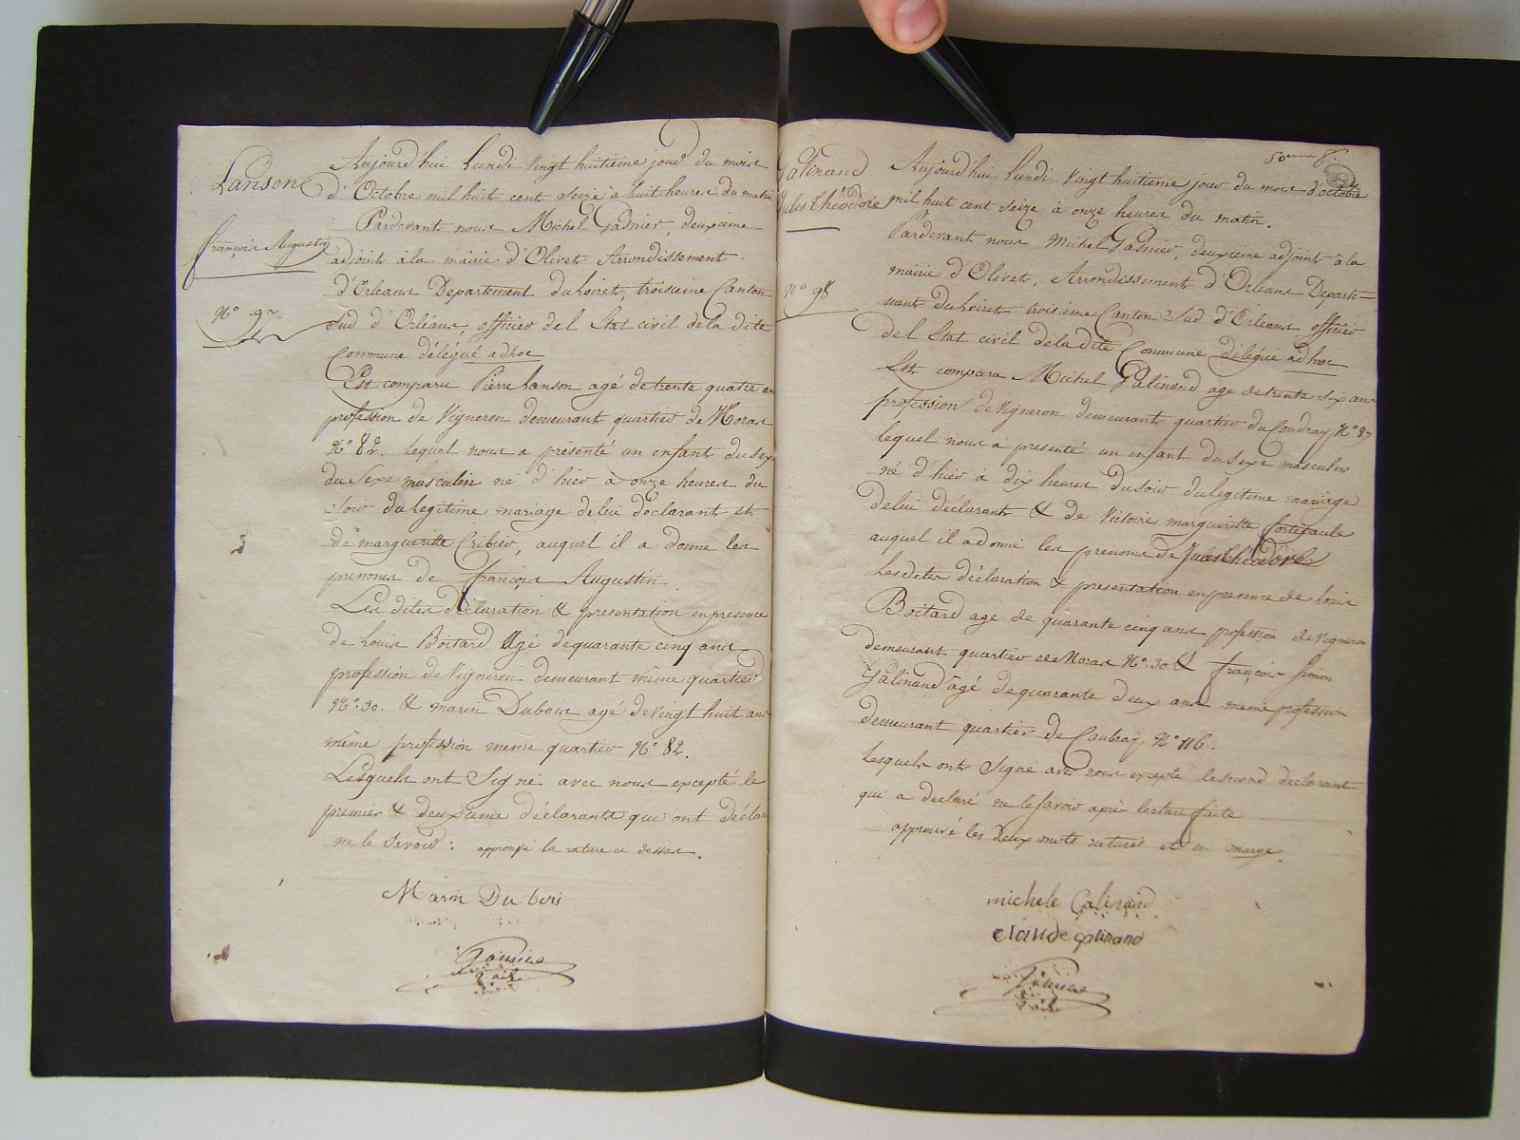 Lanson
françois Augustin
N° 97
Aujourd'hui Lundi Vingt huitième jour du mois
d'Octobre mil huit cent seize à huit heures du matin
Pardevant nous Michel Gasnier, deuxième
adjoint à la mairie d'Olivet Arrondissement
d'Orléans Département du Loiret, troisieme Canton
Sud d'Orléans, officier del Etat civil de la dite
Commune délégué adhoc
Est comparu Pierre Lanson agé de trente quatre ans
profession de Vigneron demeurant quartier de Noras
N° 82. lequel nous a présenté un enfant du sex
du Sexe masculin né d'hier à onze heures du
soir du légitime mariage de lui déclarant et
de margueritte Cribier, auquel il a donné les
prenoms de françois Augustin.
Les dites déclaration & presentation en presence
de Louis Boitard Agé de quarante cinq ans
profession de Vigneron demeurant même quartier
N° 30. & marin Dubois agé de vingt huit ans
même profession meme quartier N° 82.
Lesquels ont Signé avec nous excepté le
premier & deuxieme déclarants qui ont décla
ne le Savoir : approuvé la rature ci dessus.
Marin Du bois
Gasnier
adjt
50eme f.
Galinand
Jules théodore
N° 98
Aujourd'hui Lundi Vingt huitieme jour du mois d'octobre
mil huit cent seize à onze heures du matin.
Pardevant nous Michel Gasnier, deuxieme adjoint à la
mairie d'Olivet, Arrondissement d'Orléans Départe-
ment du Loiret troisieme Canton Sud d'Orleans officier
del Etat civil de la dite Commune délégué adhoc
Est comparu Michel Galinand agé de trente six ans
profession de Vigneron demeurant quartier du Coudray N° 87
lequel nous à presenté un enfant du sexe masculin
né d'hier à dix heures du soir du legitime mariage
de lui déclarant & de Victoire margueritte
auquel il a donné les prenoms de Jules théodore
Les dites déclaration & presentation en presence de Louis
Boitard agé de quarante cinq ans profession de Vigneron
demeurant quartier de Noras N° 30 & françois Simon
Galinand agé de quarante deux ans meme profession
demeurant quartier de Coubray, N° 116.
Lesquels ont Signé avec nous excepté le second declarant
qui a declaré ne le savoir après lecture faite
approuvé les deux mots raturés et en marge.
michele Galinand
claude galinand
Gasnier
adjt